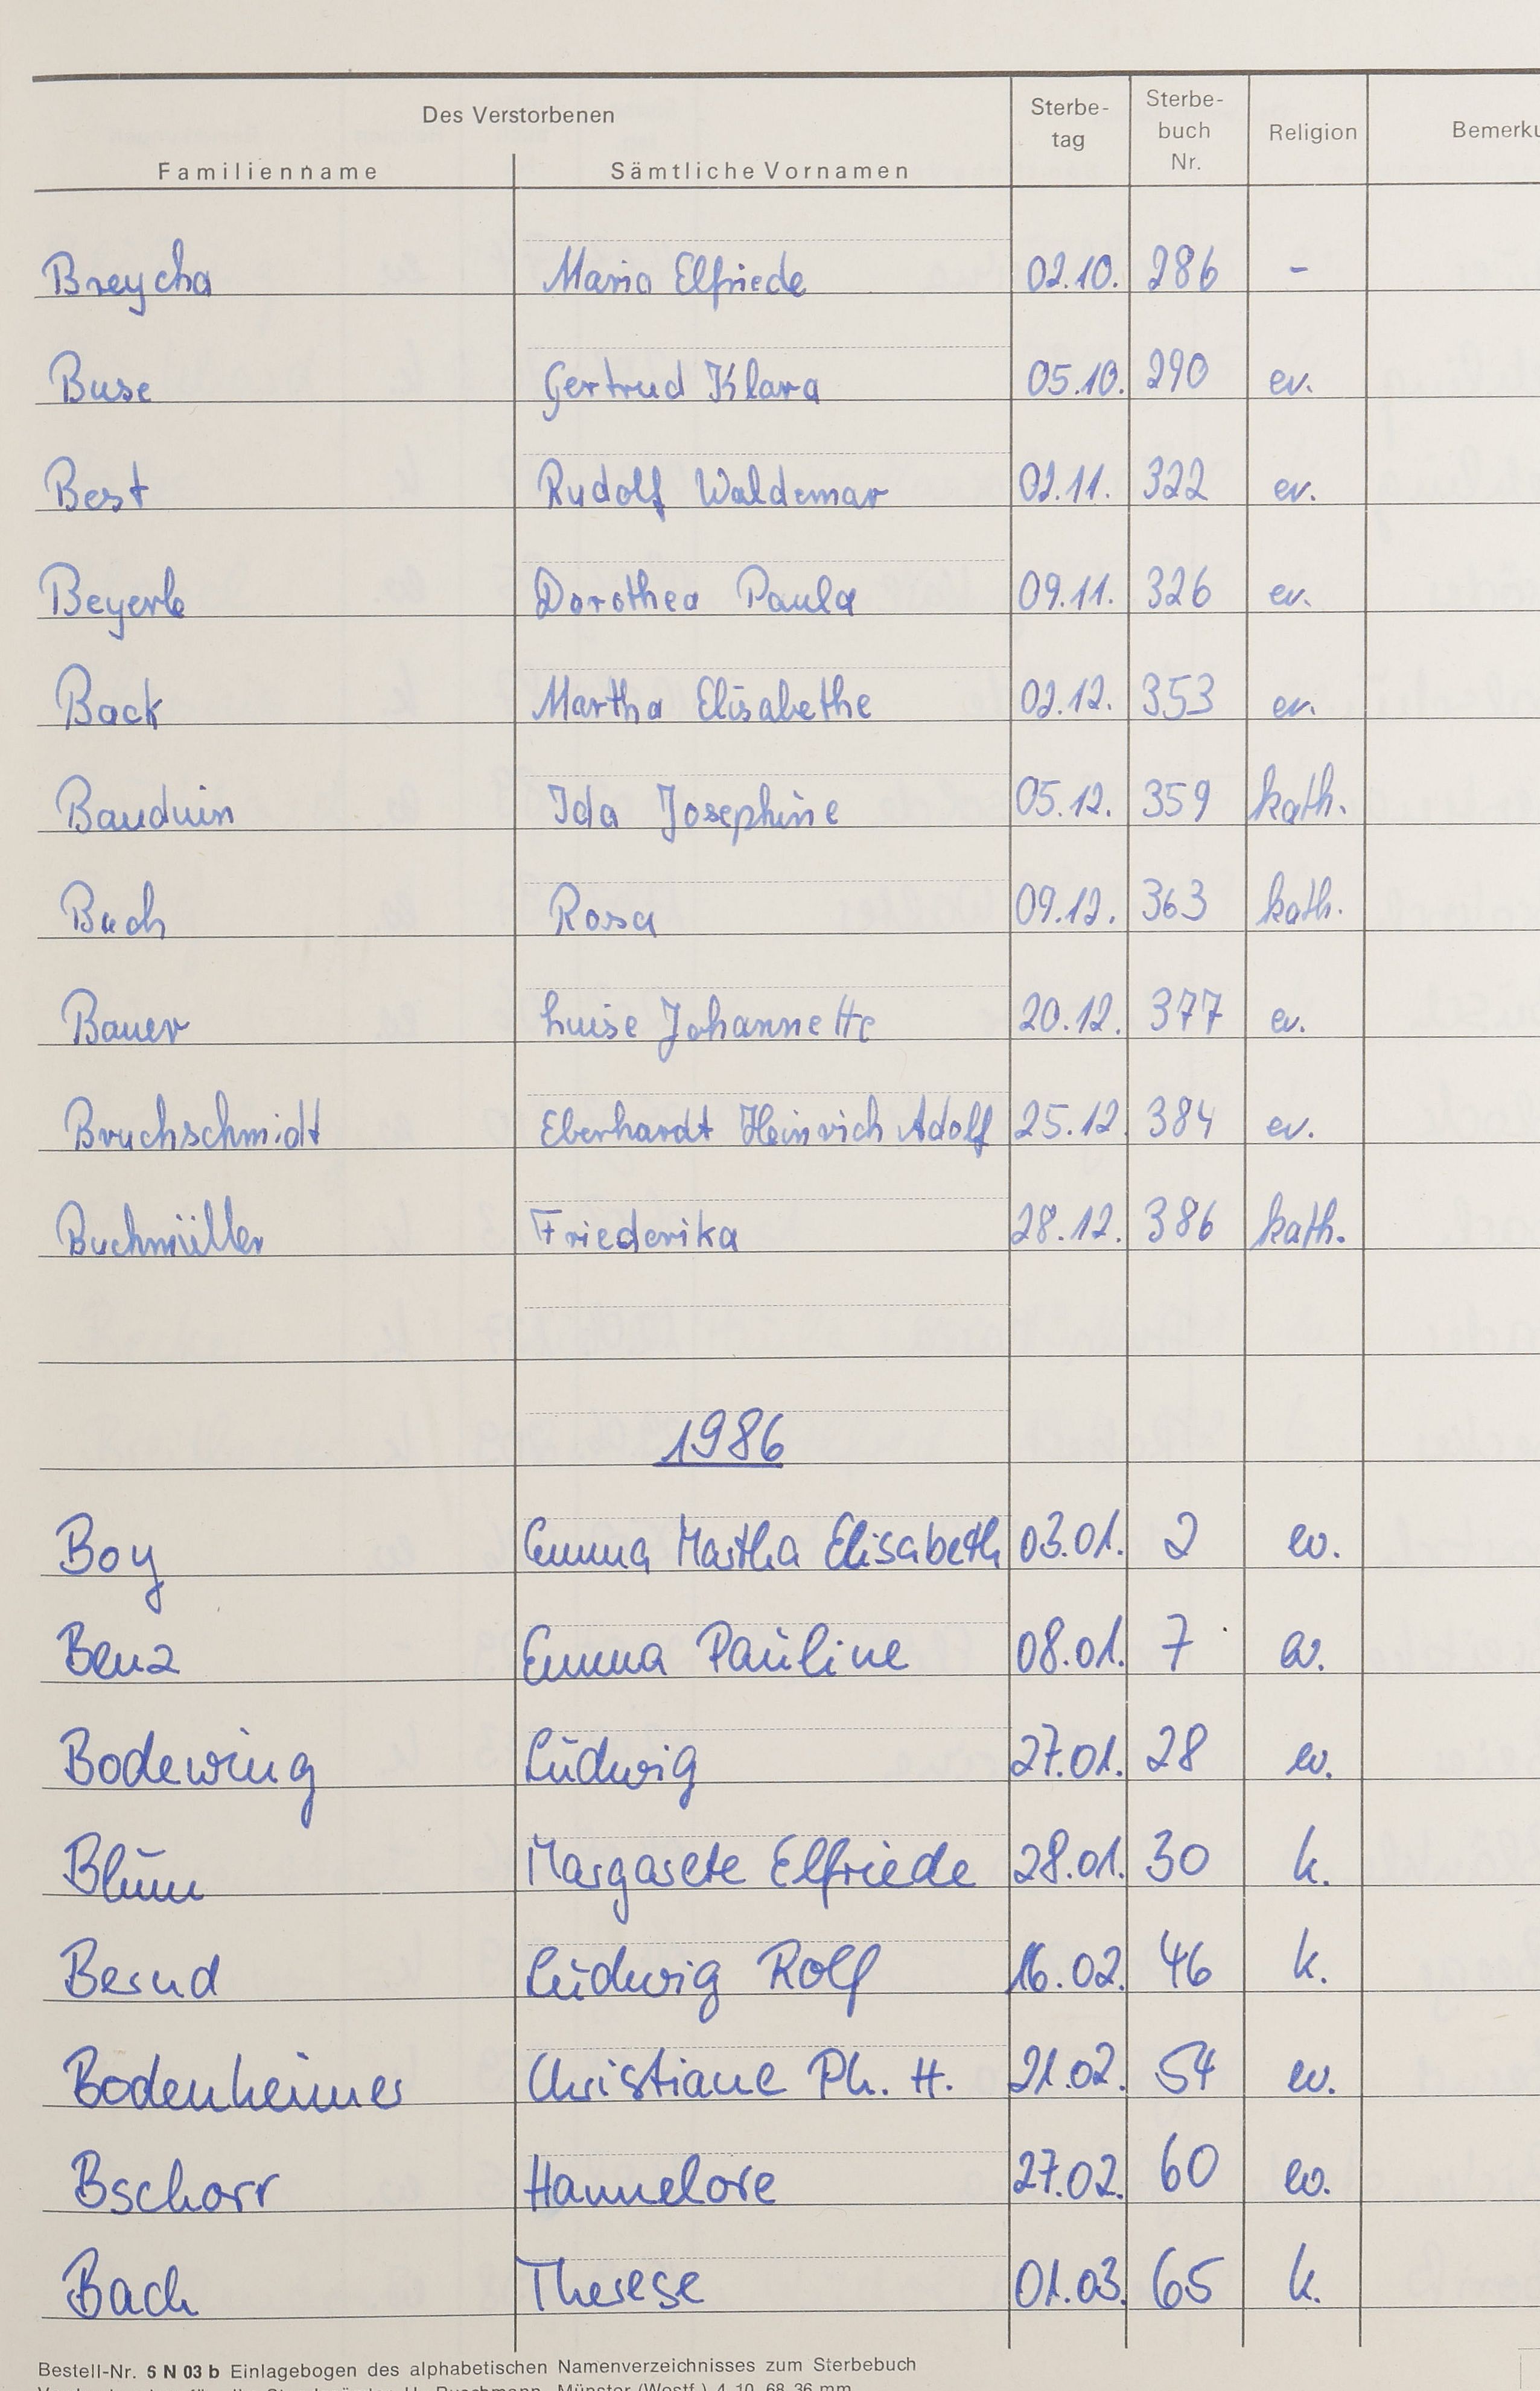 Des Verstorbenen
Familienname Sämtliche Vornamen Sterbe-tag Sterbe-buch Nr. Religion Bemerku
Breycha Maria Elfriede 02.10. 286 -
Buse Gertrud Klara 05.10. 290 ev.
Best Rudolf Waldemar 02.11. 322 ev.
Beyerle Dorothea Paula 09.11. 326 ev.
Back Martha Elisabethe 02.12. 353 ev.
Bauduin Ida Josephine 05.12. 359 kath.
Buch Rosa 09.12. 363 kath.
Bauer Luise Johannette 20.12. 377 ev.
Bruchschmidt Eberhardt Heinrich Adolf 25.12. 384 ev.
Buchmüller Friederika 28.12. 386 kath.
1986
Boy Emma Martha Elisabeth 03.01. 2 ev.
Benz Emma Pauline 08.01. 7 ev.
Bodewing Ludwig 27.01. 28 ev.
Blum Margarete Elfriede 28.01. 30 k.
Bernd Ludwig Rolf 16.02. 46 k.
Bodenheimer Christiane Ph. H. 21.02. 54 ev.
Bschorr Hannelore 27.02. 60 ev.
Bach Therese 01.03. 65 k.
Bestell-Nr. S N 03 b Einlagebogen des alphabetischen Namenverzeichnisses zum Sterbebuch